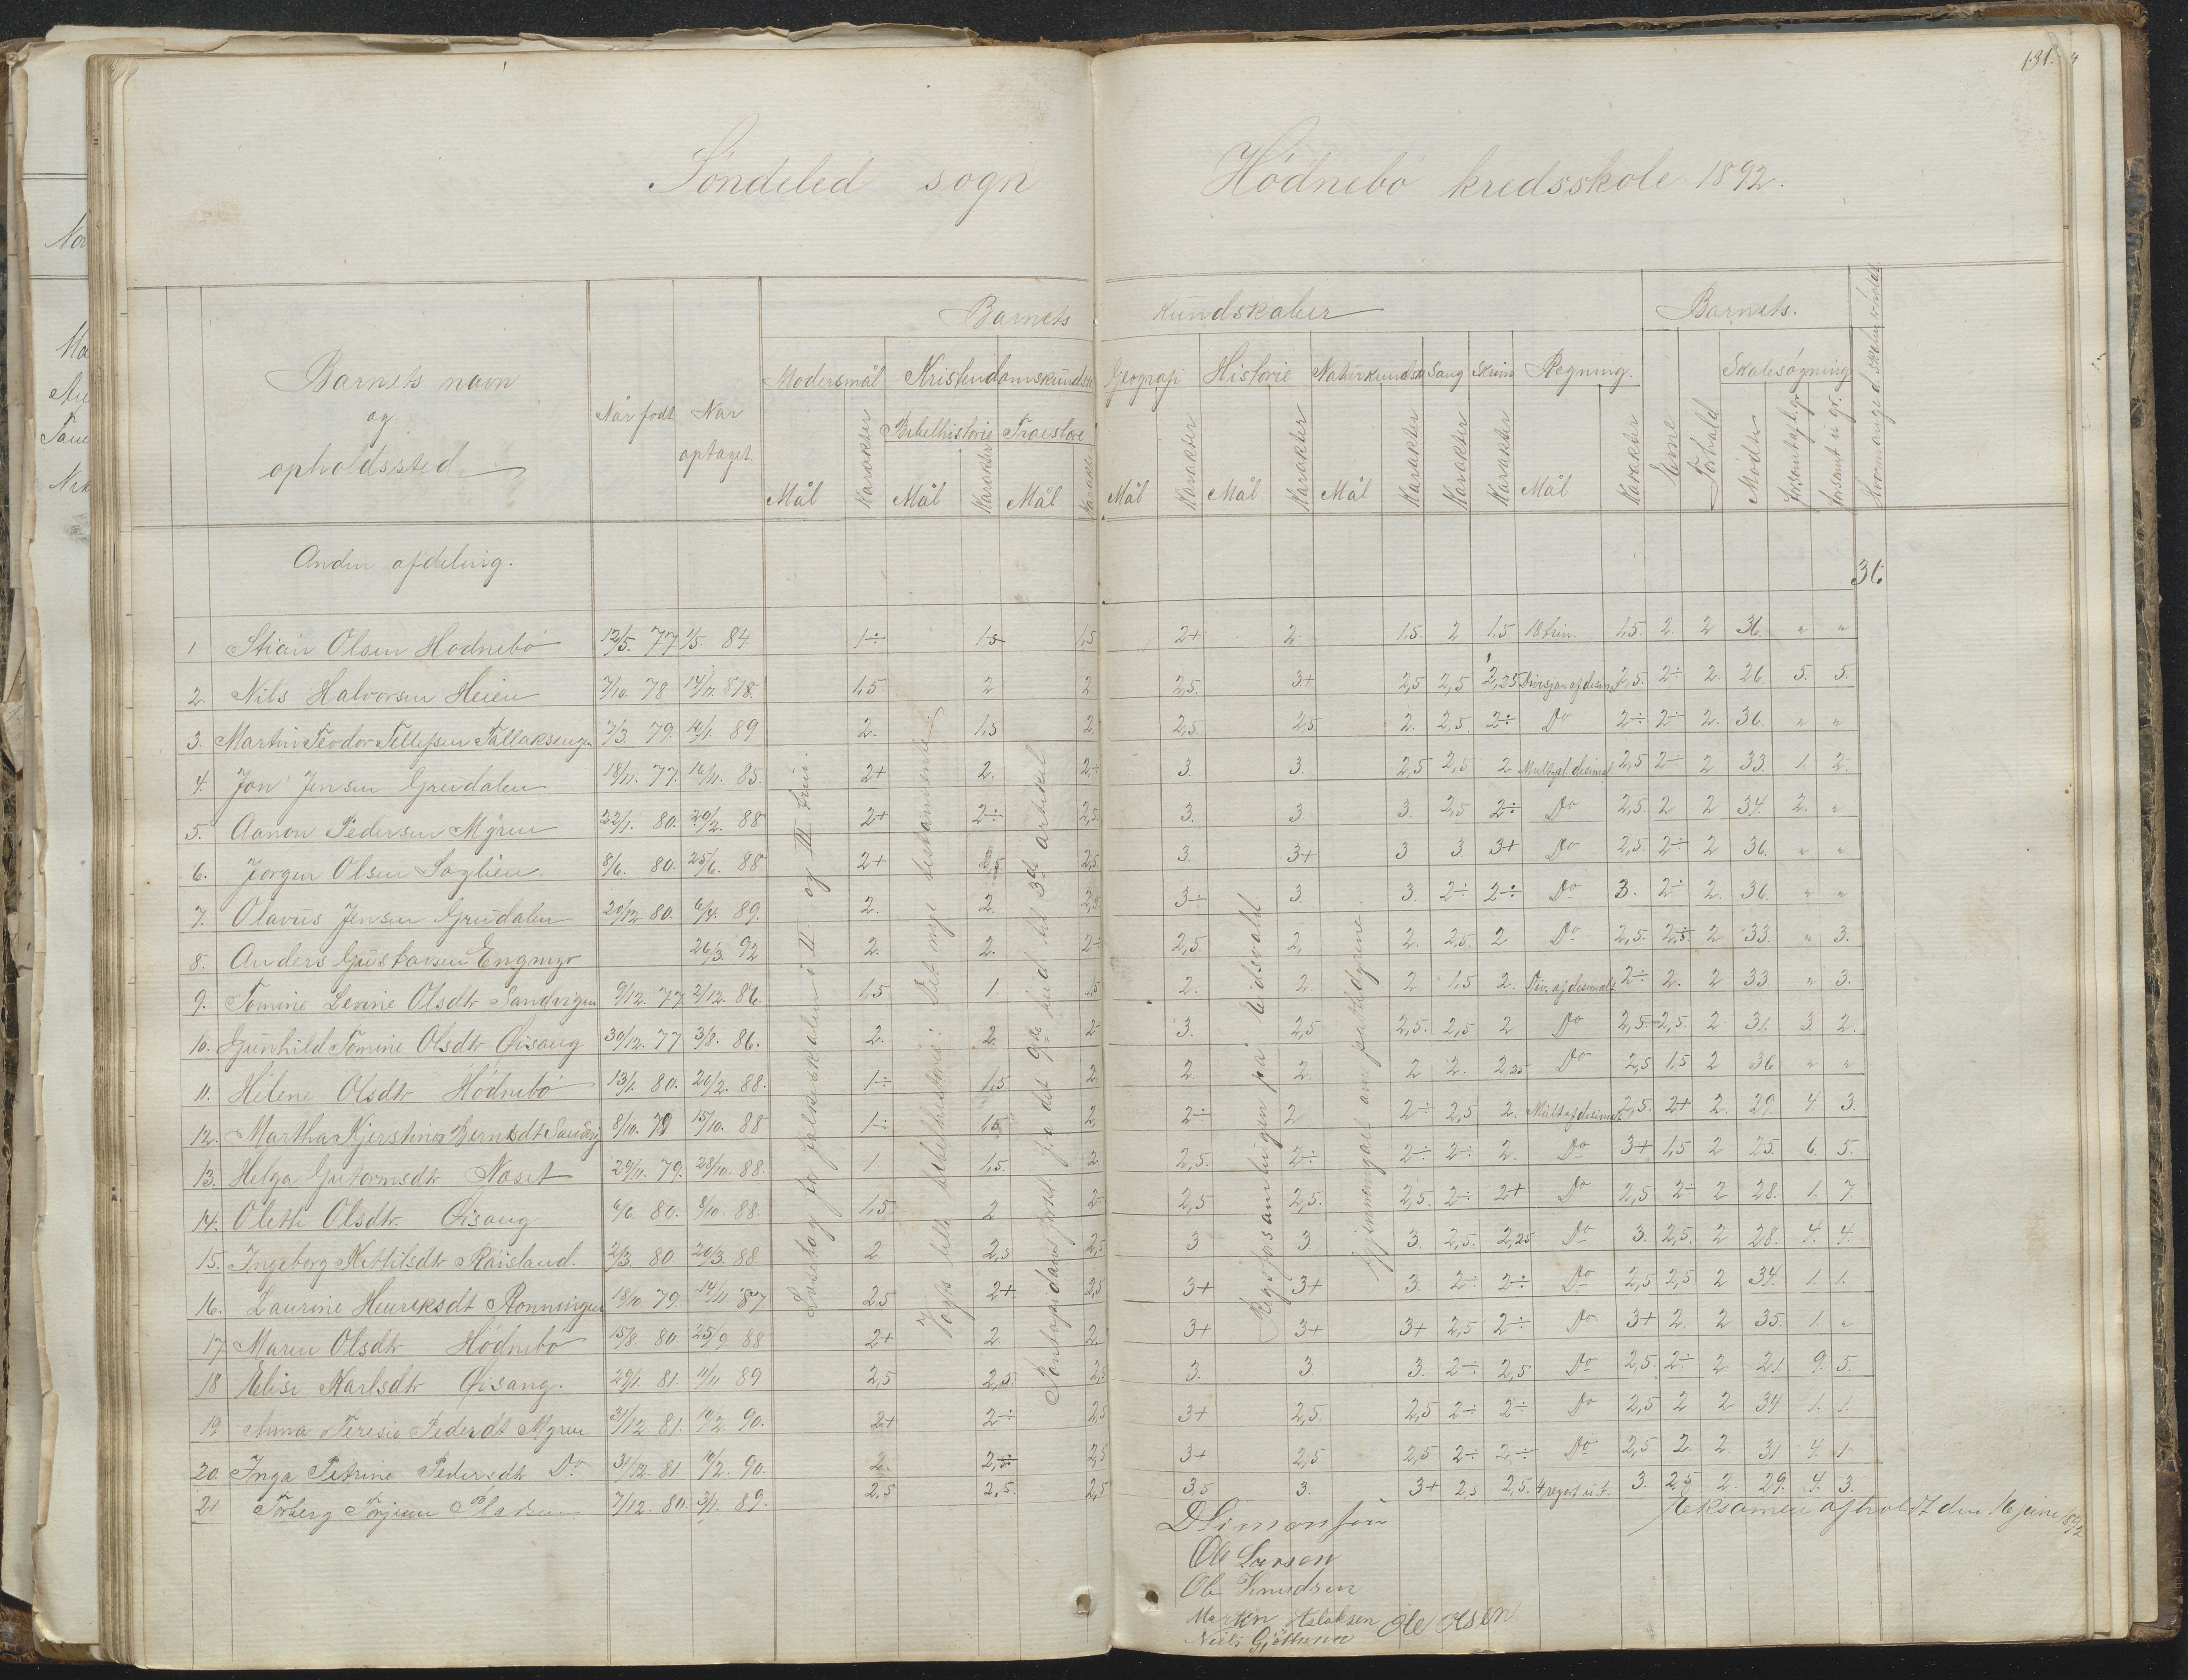 131.
Söndeled sogn Hödnebö kredsskole 1892.
Barnets kundskaber Barnets.
Barnets navn og opholdssted
Når født
Når optaget
Modersmål Kristendomskundsk Geografi Historie Naturkundsk Sang Skrivn Regning. Evne Forhold Skolesøgning
Bibelhistorie Troeslære
Mål Karakter Mål Karakter Mål Karakter Mål Karakter Mål Karakter Mål Karakter Karakter Karakter Mål Karakter Mödt forsømt
Anden afdeling. 36
1 Stian Olsen Hodnebö 12/5. 77 1/5. 84 1÷ 1,5 1,5 2+ 2. 1,5. 2 1,5 18 trin. 1,5. 2. 2 36. " "
2. Nils Halvorsen Heien 7/10. 78 1,5 2 2. 2,5. 3+ 2,5 2,5 2,25 Divisjon af desimal 2,5. 2÷ 2. 26. 5. 5.
3. Martin Teodor Tellefsen Tallaksengen 7/3. 79. 14/1. 89 2. 1,5 2. 2,5. 2,5 2. 2,5. 2÷ Do 2÷ 2÷ 2. 36. " "
4. Jon Jensen Grendalen 18/11. 77. 16/11. 85. 2+ 2. 2÷ 3. 3. 2,5 2,5 2 Mult. af desimal 2,5 2÷ 2 33. 1. 2.
5. Aanon Pedersen Myren 22/1. 80. 20/2. 88 2+ 2÷ 2,5 3. 3. 3. 2,5 2÷ Do 2,5. 2 2 34. 2. "
6. Jorgen Olsen Laglien 8/6. 80. 25/6. 88 2+ 2,5 2,5 3. 3+ 3 3 3+ Do 2,5 2÷ 2 36. " "
7. Olavus Jensen Grendalen 20/12 80. 6/4. 89. 2. 2. 2,5 3÷ 3. 3. 2÷ 2÷ Do 3. 2÷ 2. 36. " "
8. Anders Gustavsen Engmyr 26/3. 92 2. 2. 2÷ 2,5. 2, 2. 2,5. 2 Do 2,5. 2,5 2 33. " 3.
9. Tomine Levine Olsdtr Sandvigen 9/12. 77 2/12. 86. 1,5 1. 1,5 2. 2 2 1,5 2. Div. af desimal. 2÷ 2. 2 33. " 3.
10. Gunhild Tomine Olsdtr Öisang 30/12. 77 3/8. 86. 2. 2 2 3. 2,5 2,5. 2,5 2 Do 2,5. 2,5. 2 31. 3. 2.
11. Helene Olsdtr Hödnebö 13/1. 80. 20/2. 88. 1÷ 1,5 2 2 2. 2 2. 2,25 Do 2,5 1,5 2 36 " "
12. Martha Kjerstine Berntsdt Sandvig 8/10. 79 15/10. 88 1÷ 1,5 2 2÷ 2 2÷ 2,5 2. Mult af desimal 2,5. 2+ 2. 29. 4 3.
13. Helga Gutormsdtr Naset 29/11. 79. 28/10. 88. 1. 1,5. 2 2,5. 2÷ 2÷ 2÷ 2. Do 3+ 1,5 2 25. 6. 5.
14. Olette Olsdtr. Öisang 6/6. 80. 8/10. 88. 1,5 2 2 2,5 2,5. 2,5. 2÷ 2+ Do 2,5 2÷ 2 28. 1. 7.
15. Ingeborg Kittilsdtr Röisland. 2/3. 80 20/3. 88 2 2,5 2,5 3 3. 3. 2,5. 2,25 Do 3. 2,5. 2 28. 4. 4.
16. Laurine Henriksdt Ronningen 18/10. 79. 14/11. 87 2,5 2+ 2,5 3+ 3+ 3. 2÷ 2÷ Do 2,5 2,5 2 34. 1. 1.
17 Maren Olsdtr Hödnebö 15/8. 80 25/9 88 2+ 2. 2. 3+ 3+ 3+ 2,5 2÷ Do 3+ 2. 2 35. 1. "
18 Elise Karlsdtr Öisang. 29/1. 81. 11/11 89 2,5 2,5. 2,5 3. 3. 3. 2÷ 2,5 Do 2,5. 2÷ 2 21. 9. 5.
19 Anna Teresia Pedersdt Myren 31/12. 81. 10/2 90. 2+ 2÷ 2,5 3+ 2,5. 2,5 2÷ 2÷ Do 2,5 2 2 34 1. 1.
20. Inga Petrine Pedersdtr Do 31/12. 81. 10/2. 90. 2. 2,5 3+ 2,5 2,5 2÷ 2÷ Do 2,5 2. 2. 31 4. 1
21 Torberg Torjesen Pladsen 7/12. 80. 3/1. 89. 2,5 2,5. 2,5 3,5 3. 3+ 2,5 2,5. 4 regart u.t. 3. 2,5 2. 29. 4. 3.
Læsebog for folkeskolen i II og III trin.
Vogts lille bibelhistorie: Det nye testamente.
Pontoppidans forkl. fra det 9de bud til 3die artikel
Rigsforsamlingen på Eidsvold
Gjennemgået om pattedyrene.
Eksamen afholdt den 16 juni 1892
D Simonsen
Ole Larsen
Ole Knudsen
Martin Aslaksen Ole Olsen